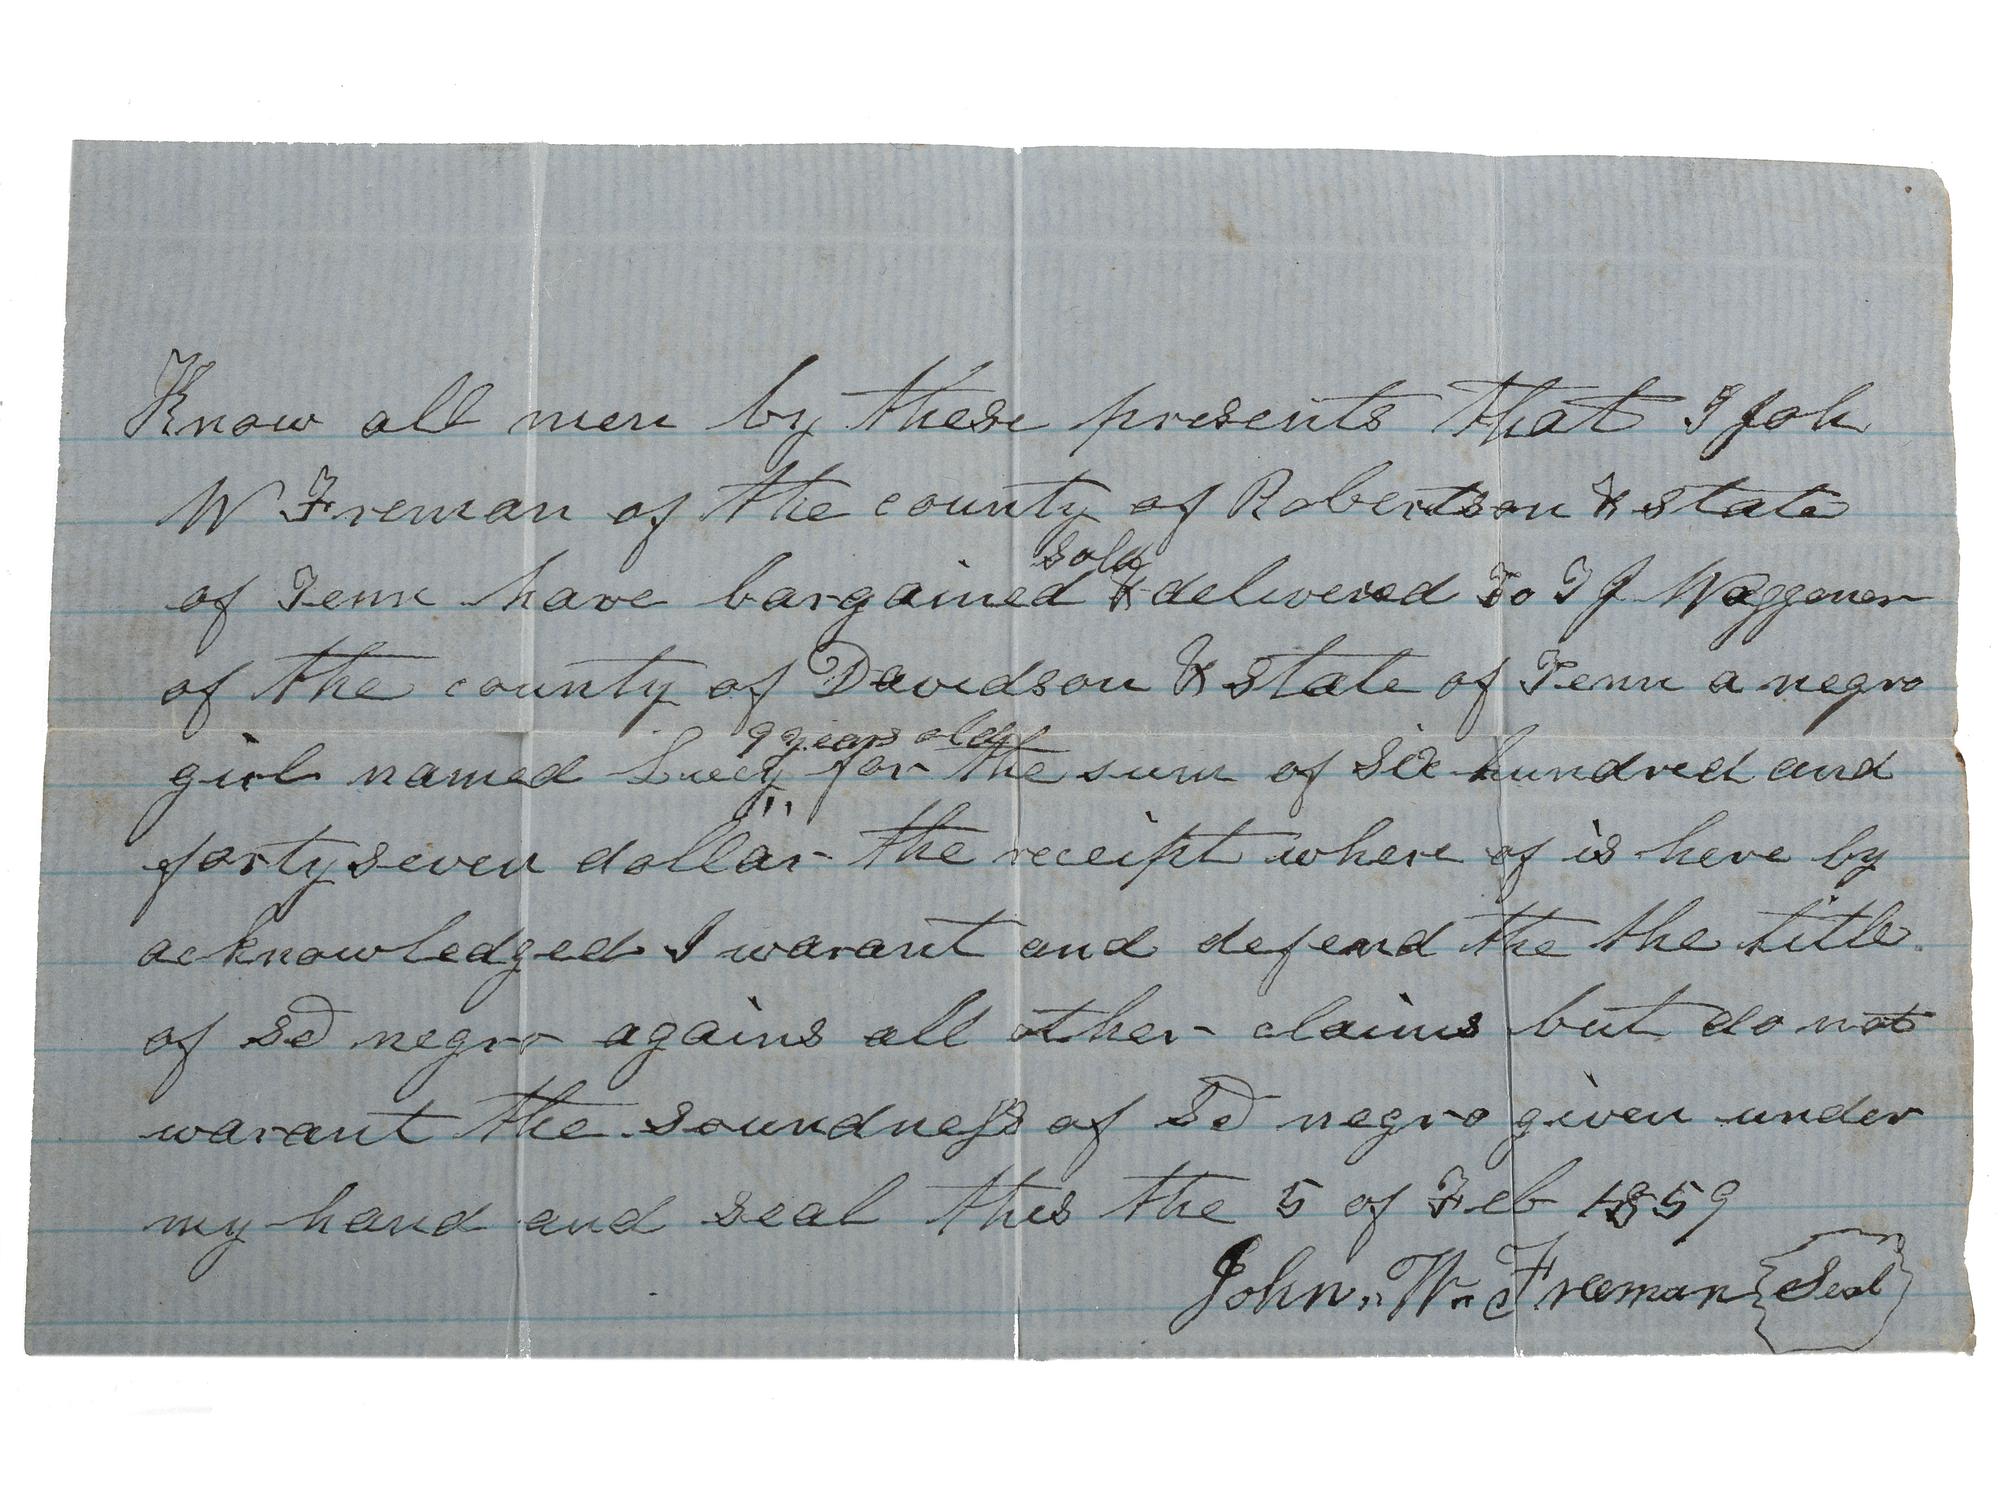 Know all men by these presents that I Joh
W Freman of the county of Robertson & state
sold
of Tenn have bargained & delivered To T J Waggoner
of the county of Davidson & state of Tenn a negro
9 years old
girl named Lucy for the sum of six hundred and
forty seven dollar the receipt where of is here by
acknowledged I warant and defend the the title
of sd negro agains all other claims but do not
warant the soundness of sd negro given under
my hand and seal this the 5 of Feb 1859
John W Freeman Seal